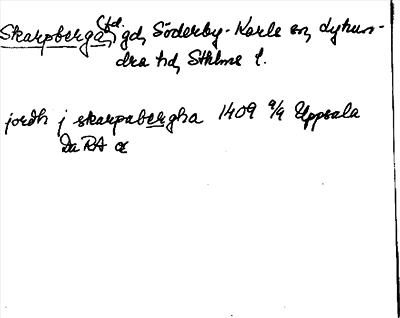 Skarpberga, (f.d.) gd, Söderby-Karls sn, Lyhun-
dra hd, Sthlms l.
jordh j skarpabergha 1409 9/9 Uppsala
Da RA